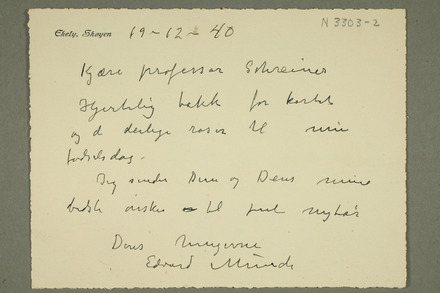 Ekely, Skøyen 19-12-40
N 3303-2
Kjære professor Schreiner
Hjertelig takk for kortet
og de deilige roser til min
fødselsdag.
Jeg sender Dem og Deres mine
bedste ønsker til nyttår
Deres hengivne
Edvard Munch